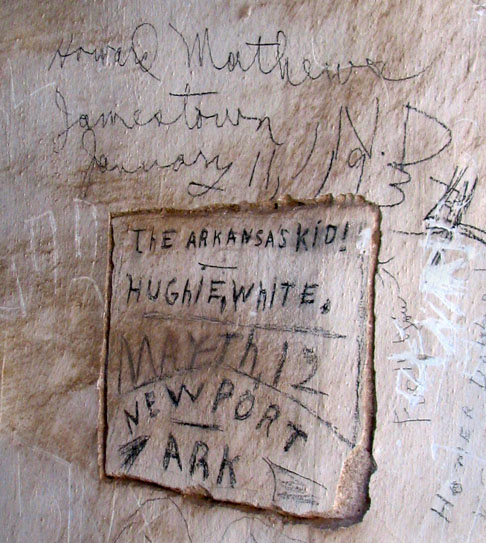 Howard Mathews
Jamestown N.D
January 11, 19
THE ARKANSA'S KiD!
HUGHIE, WhiTE.
MAY-Th 12
NEWPORT
ARK
HOMER